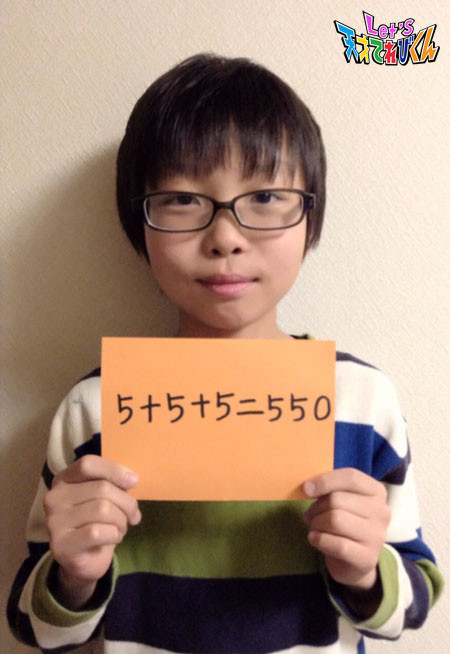 Let's
天才てれびくん
5+5+5=550